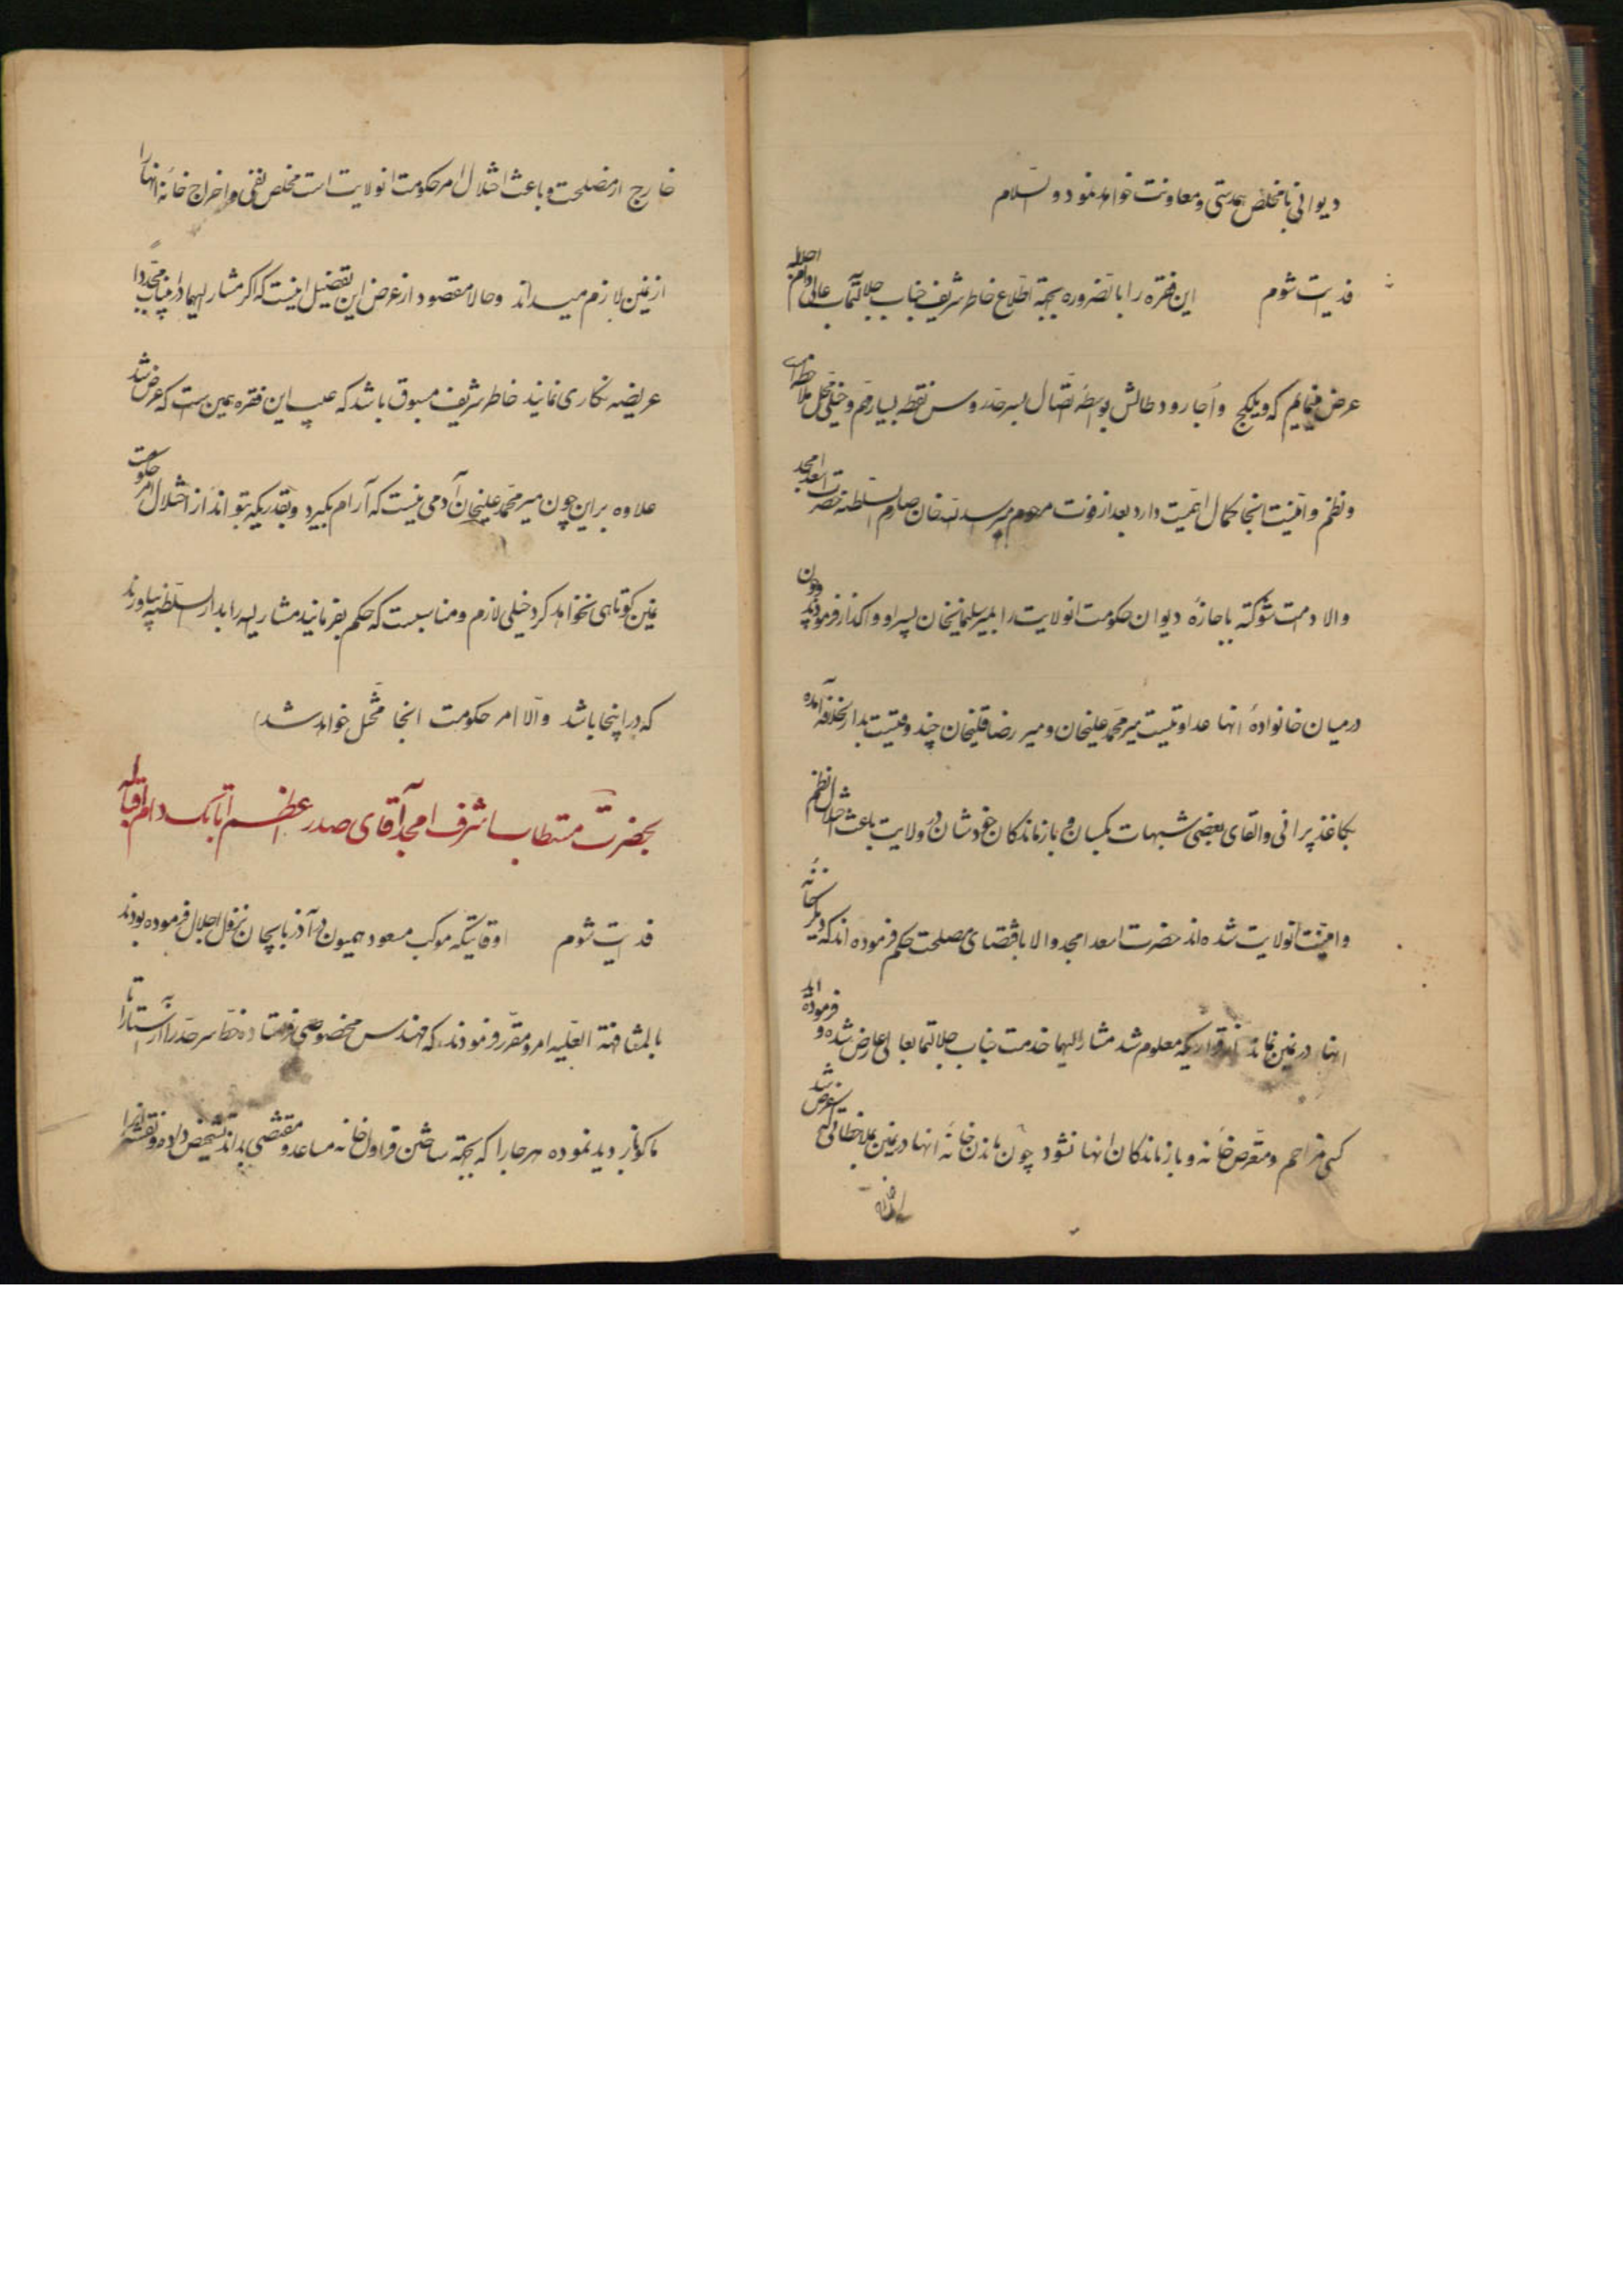 دیوانی با مخلص همدستی و معاونت خواهد نمود والسلام
فدیت شوم این فقره را بالضروره بجهة اطلاع خاطر شریف جناب جلالتمآب عالی دام اجلاله
عرض مینمایم که ویلکیج و اجارود طالش بواسطه اتصال بسرحد روس نقطه بسیار مهم و خیلی محل ملاحظه است
و نظم و امنیت انجا کمال اهمیت دارد بعد از فوت مرحوم میر اسدالله خان صارم السلطنه حضرت اسعد امجد
والا دامت شوکته باجازهٔ دیوان حکومت انولایت را بمیر سلیمانخان پسر او واکذار فرمودند چون
در میان خانوادهٔ انها عداوتیست میر محمد علیخان و میر رضا قلیخان چند وقتیست بدارالخلافه آمده
بکاغذ پرانی و القای بعضی شبهات بکسان و بازماندکان خودشان در ولایت باعث اختلال نظم
و امنیت انولایت شده‌اند حضرت اسعد امجد والا باقتضای مصلحت حکم فرموده‌اند که دیکر خانه
انها در نمین نماند از قراریکه معلوم شد مشارالیهما خدمت جناب جلالتمآبعالی عارض شده و فرموده‌اید
کسی مزاحم و متعرض خانه و بازماندکان انها نشود چون ماندن خانه انها در نمین بملاحظاتیکه عرض شد
خارج از مصلحت و باعث اختلال امر حکومت انولایت است مخلص نفی و اخراج خانه انها را
از نمین لازم میداند و حالا مقصود از عرض این تفصیل اینست که اکر مشارالیهما در اینباب مجددا
عریضه نکاری نمایند خاطر شریف مسبوق باشد که عیب این فقره همین است که عرض شد
علاوه بر این چون میر محمد علیخان آدمی نیست که آرام بکیرد و بقدریکه بتواند از اختلال امر حکومت
نمین کوتاهی نخواهد کرد خیلی لازم و مناسبست که حکم بفرمایند مشارالیه را بدارالسلطنه بیاورند
که در اینجا باشد والا امر حکومت انجا مختل خواهد شد
بحضرت مستطاب اشرف امجد آقای صدر اعظم اتابک دام اقباله
فدیت شوم اوقاتیکه موکب مسعود همیون در آذربایجان نزول اجلال فرموده بودند
بالمشافهة العلیه امر و مقرر فرمودند که مهندس مخصوصی فرستاده خط سرحد را از آستارا تا
ماکو بازدید نموده هر جا را که بجهة ساختن قراولخانه مساعد و مقتضی بداند تشخیص داده و نقشه انرا